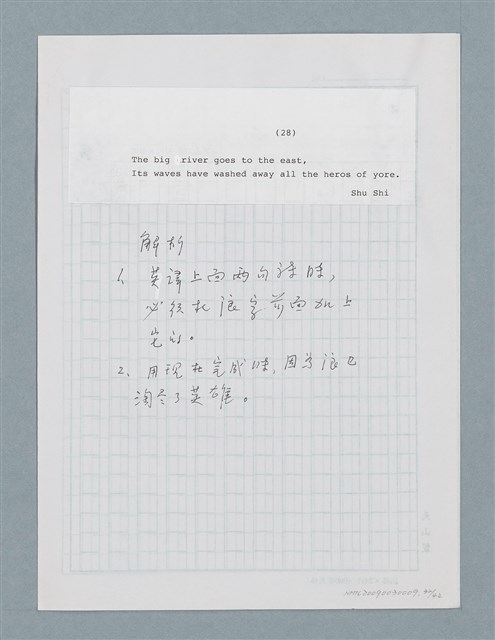 (28)
The big river goes to the east,
Its waves have washed away all the heros of yore.
Shu Shi
解析
1、英譯上面兩句詩時，
必須在浪字前面加上
它的。
2、用現在完成時，因為浪已
淘尽了英雄。